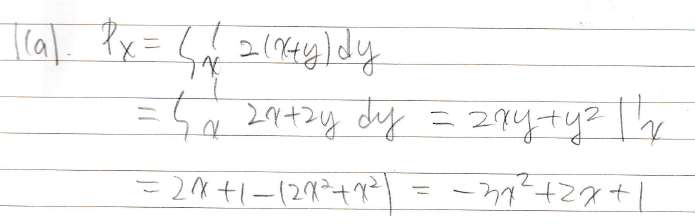 1(a). Px = ∫_x^1 2(x+y) dy
= ∫_x^1 2x+2y dy = 2xy+y² |_x^1
= 2x+1-(2x²+x²) = -3x²+2x+1